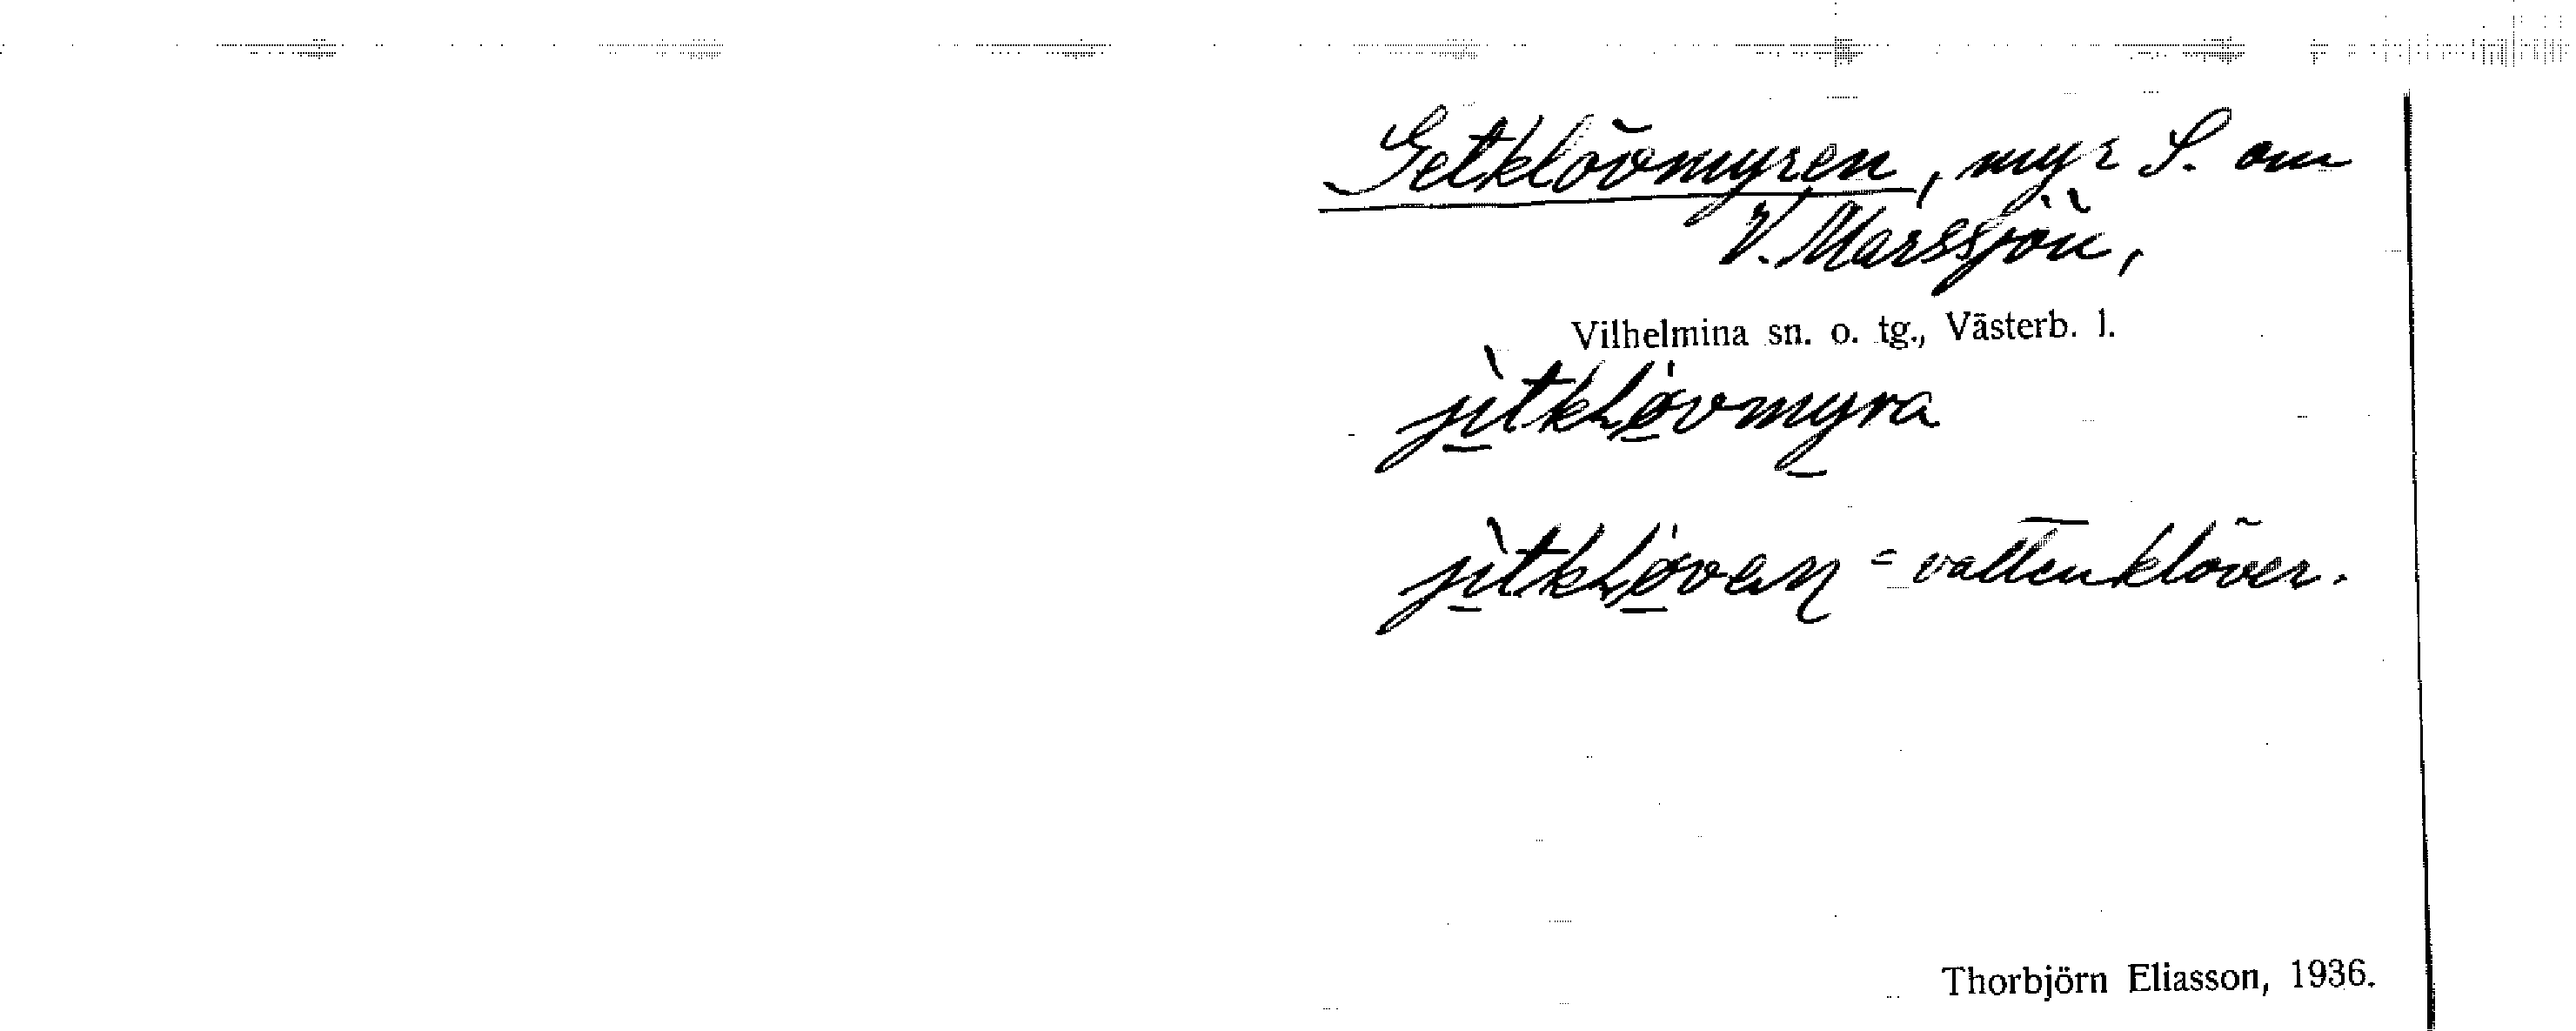 Getklövmyren, myr S. om
V. Marssjön,
Vilhelmina sn. o. tg., Västerb. l.
jìtkLøvmyra
jìtkLøvən = vattenklöver.
Thorbjörn Eliasson, 1936.